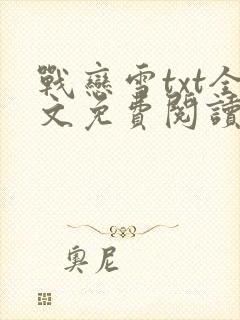 戰戀雪txt全
文免費閱讀
奧尼